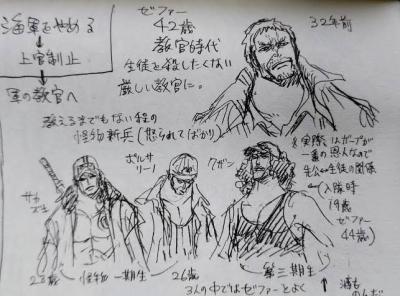 海軍をやめる
↓
上官制止
↓
軍の教官へ
ゼファー
42歳
教官時代
生徒を殺したくない
厳しい教官に。
32年前
教えるまでもない程の
怪物新兵(怒られてばかり)
サカズキ
ボルサリーノ
クザン
※実際はガープが
一番の恩人なので
先公⇔生徒の関係
入隊時
19歳
ゼファー
44歳
23歳
怪物一期生
26歳
第三期生
3人の中ではゼファーとよく
酒も
のんだ